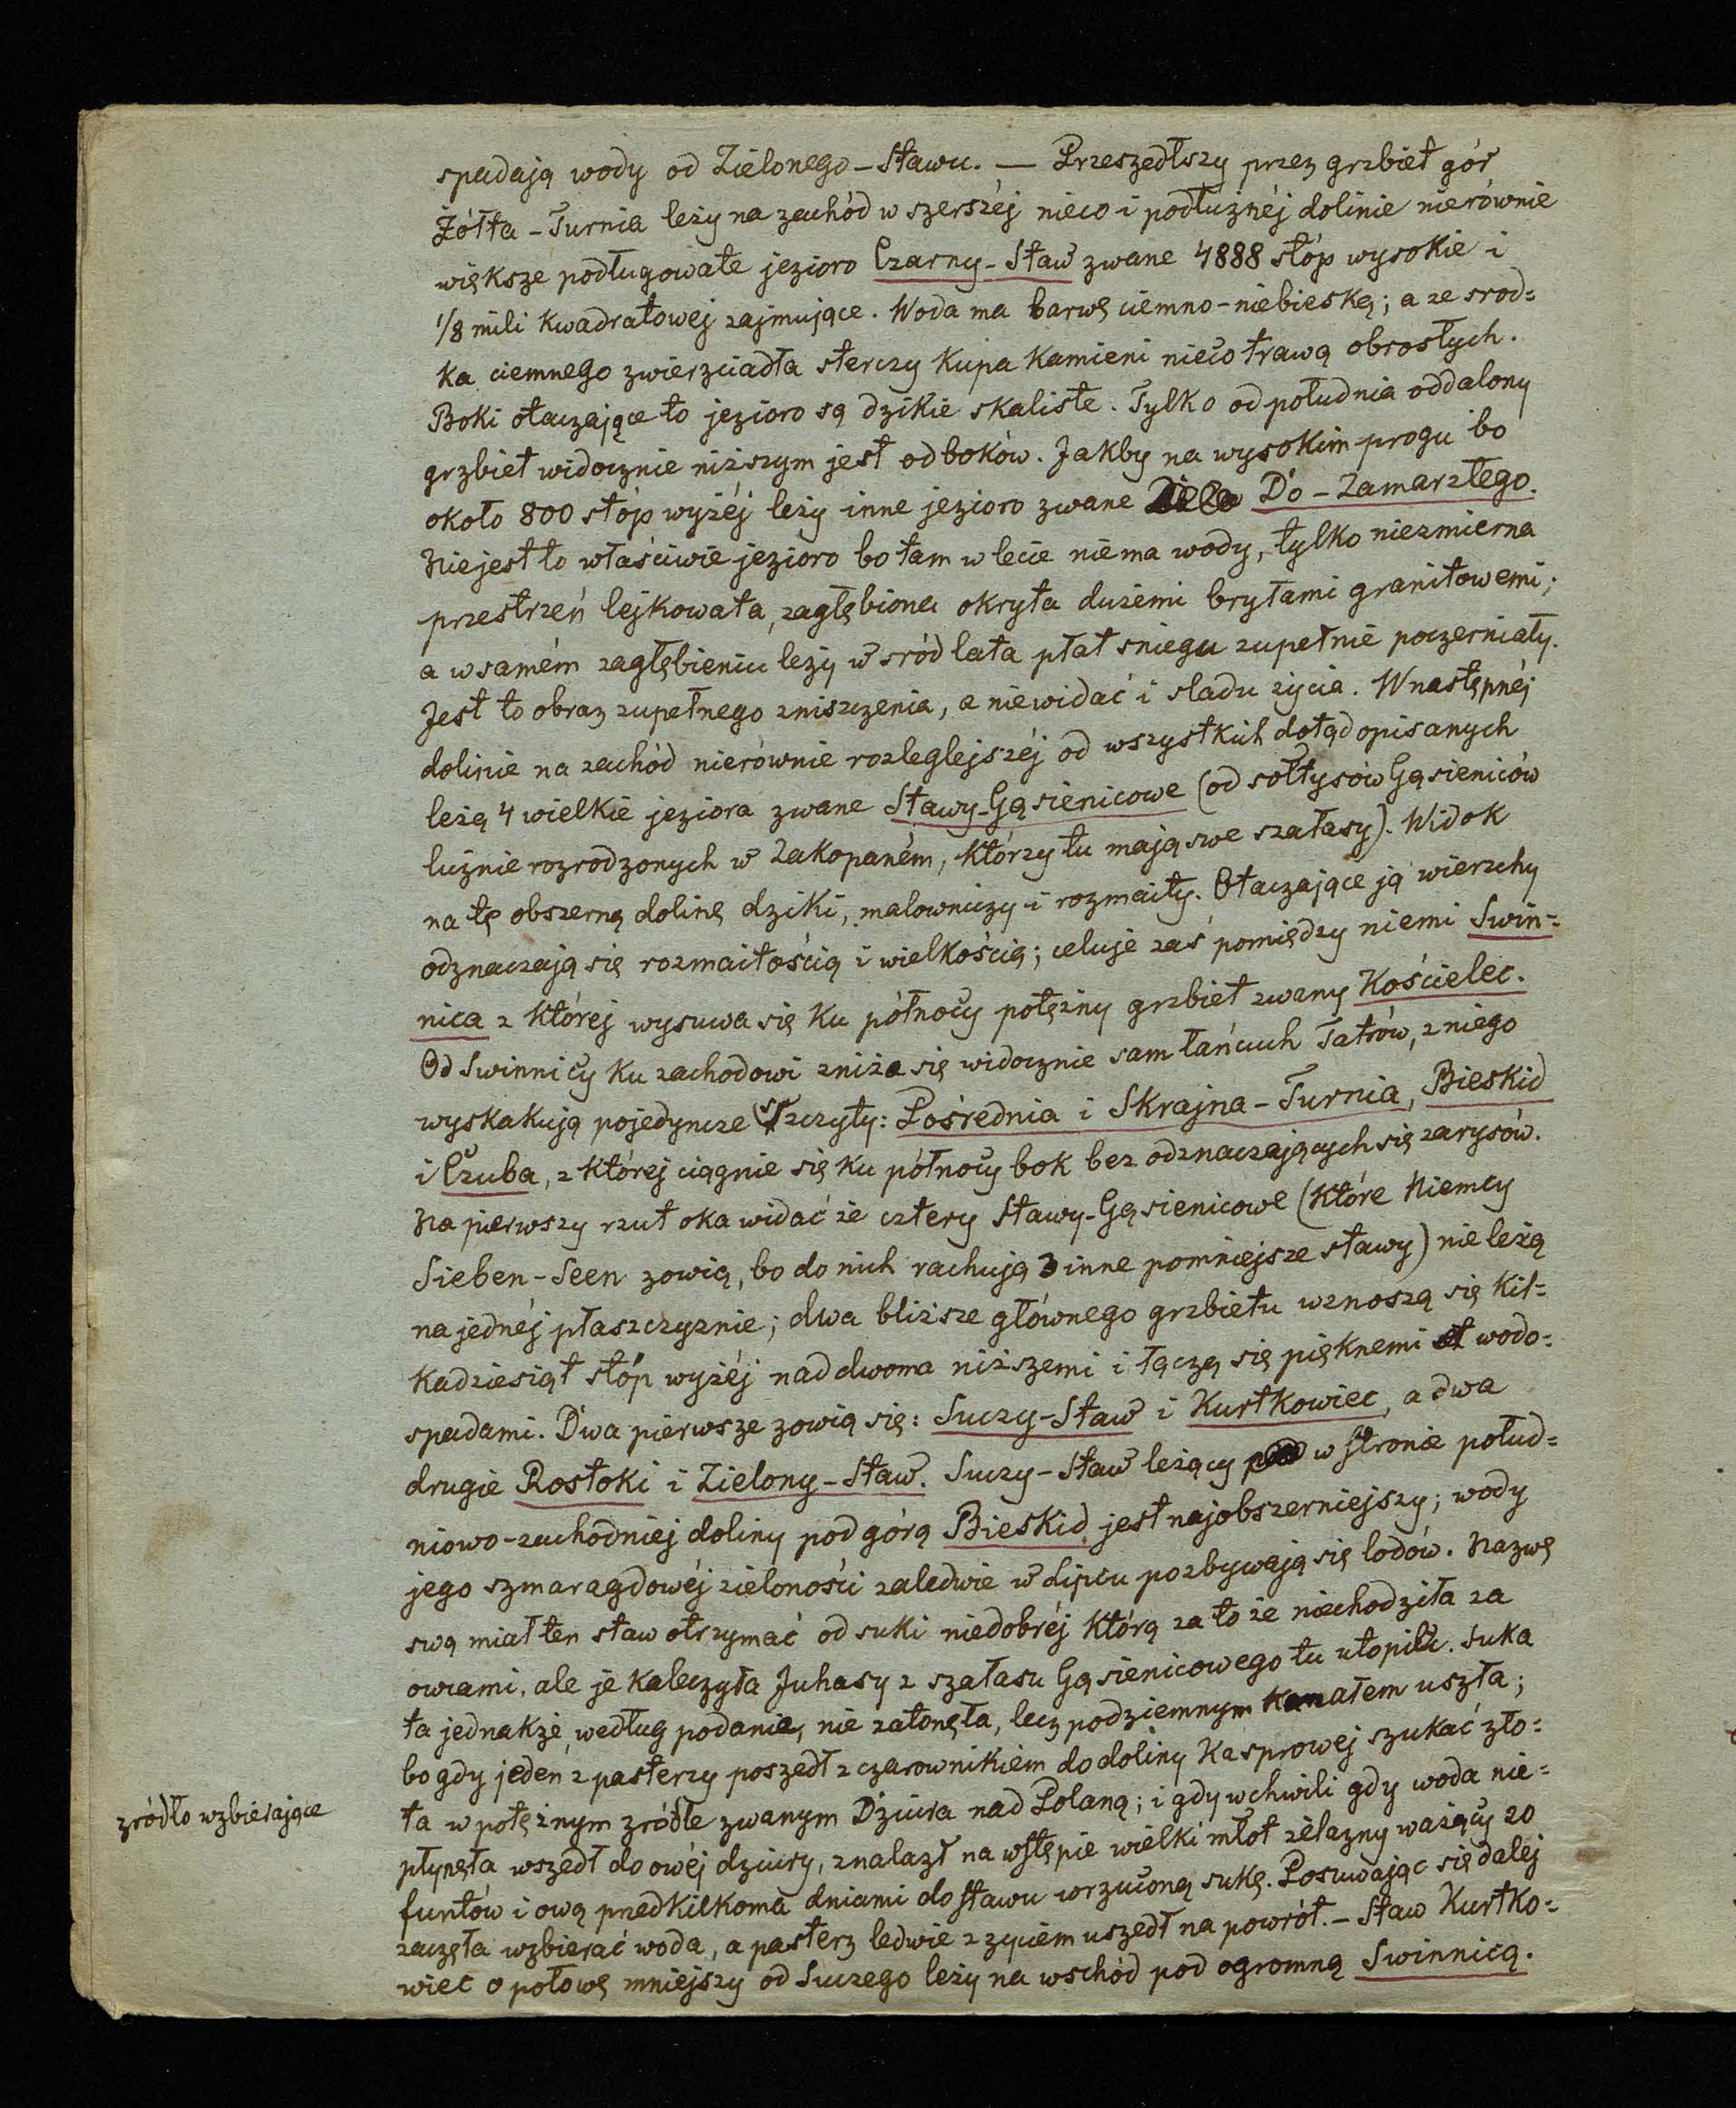 spadają wody od Zielonego-Stawu. — Przeszedłszy przez grzbiet gór
Żółta-Turnia leży na zachód w szerszéj nieco i podłużnéj dolinie nierównie
większe podługowate jezioro Czarny-Staw zwane 4888 stóp wysokie i
1/8 mili kwadratowej zajmujące. Woda ma barwę ciemno-niebieską; a ze srod=
ka ciemnego zwierzciadła sterczy kupa kamieni nieco trawą obrosłych.
Boki otaczające to jezioro są dzikie skaliste. Tylko od południa oddalony
grzbiet widocznie niższym jest od boków. Jakby na wysokim progu bo
około 800 stóp wyżéj leży inne jezioro zwane Do-Zamarzłego.
Niejest to właściwie jezioro bo tam w lecie niema wody, tylko niezmierna
przestrzeń lejkowata, zagłębiona okryta dużemi bryłami granitowemi;
a w samém zagłębieniu leży w sród lata płat sniegu zupełnie poczerniały.
Jest to obraz zupełnego zniszczenia, a niewidać i sladu życia. W następnéj
dolinie na zachód nierównie rozleglejszéj od wszystkich dotąd opisanych
leżą 4 wielkie jeziora zwane Stawy-Gąsienicowe (od sołtysów Gąsieniców
licznie rozrodzonych w Zakopaném, którzy tu mają swe szałasy). Widok
na tę obszerną dolinę dziki, malowniczy i rozmaity. Otaczające ją wierzchy
odznaczają się rozmaitością i wielkością; celuje zaś pomiędzy niemi Swin=
nica z której wysuwa się ku północy potężny grzbiet zwany Kościelec.
Od Swinnicy ku zachodowi zniża się widocznie sam łańcuch Tatrów, z niego
wyskakują pojedyncze szczyty: Pośrednia i Skrajna-Turnia, Bieskid
i Czuba, z której ciągnie się ku północy bok bez odznaczających się zarysów.
Na pierwszy rzut oka widać że cztery Stawy-Gąsienicowe (które Niemcy
Sieben-Seen zowią, bo do nich rachują 3 inne pomniejsze stawy) nie leżą
na jednéj płaszczyznie; dwa bliższe głównego grzbietu wznoszą się kil=
kadziesiąt stóp wyżéj nad dwoma niższemi i łączą się pięknemi wodo=
spadami. Dwa pierwsze zowią się: Suczy-Staw i Kurtkowiec, a dwa
drugie Rostoki i Zielony-Staw. Suczy-Staw leżący w stronie połud=
niowo-zachodniej doliny pod górą Bieskid jest najobszerniejszy; wody
jego szmaragdowéj zieloności zaledwie w Lipcu pozbywają się lodów. Nazwę
swą miał ten staw otrzymać od suki niedobréj którą za to że niechodziła za
owcami, ale je kaleczyła Juhasy z szałasu Gąsienicowego tu utopili. Suka
ta jednakże, według podania, nie zatonęła, lecz podziemnym kanałem uszła;
bo gdy jeden z pasterzy poszedł z czarownikiem do doliny Kasprowej szukać zło=
ta w potężnym zródle zwanym Dziura nad Polaną; i gdy w chwili gdy woda nie=
zródło wzbierające
płynęła wszedł do owéj dziury, znalazł na wstępie wielki młot żelazny ważący 20
funtów i ową przedkilkoma dniami do stawu wrzuconą sukę. Posuwając się dalej
zaczęła wzbierać woda, a pasterz ledwie z zyciem uszedł na powrót. – Staw Kurtko=
wiec o połowę mniejszy od Suczego leży na wschód pod ogromną Swinnicą.